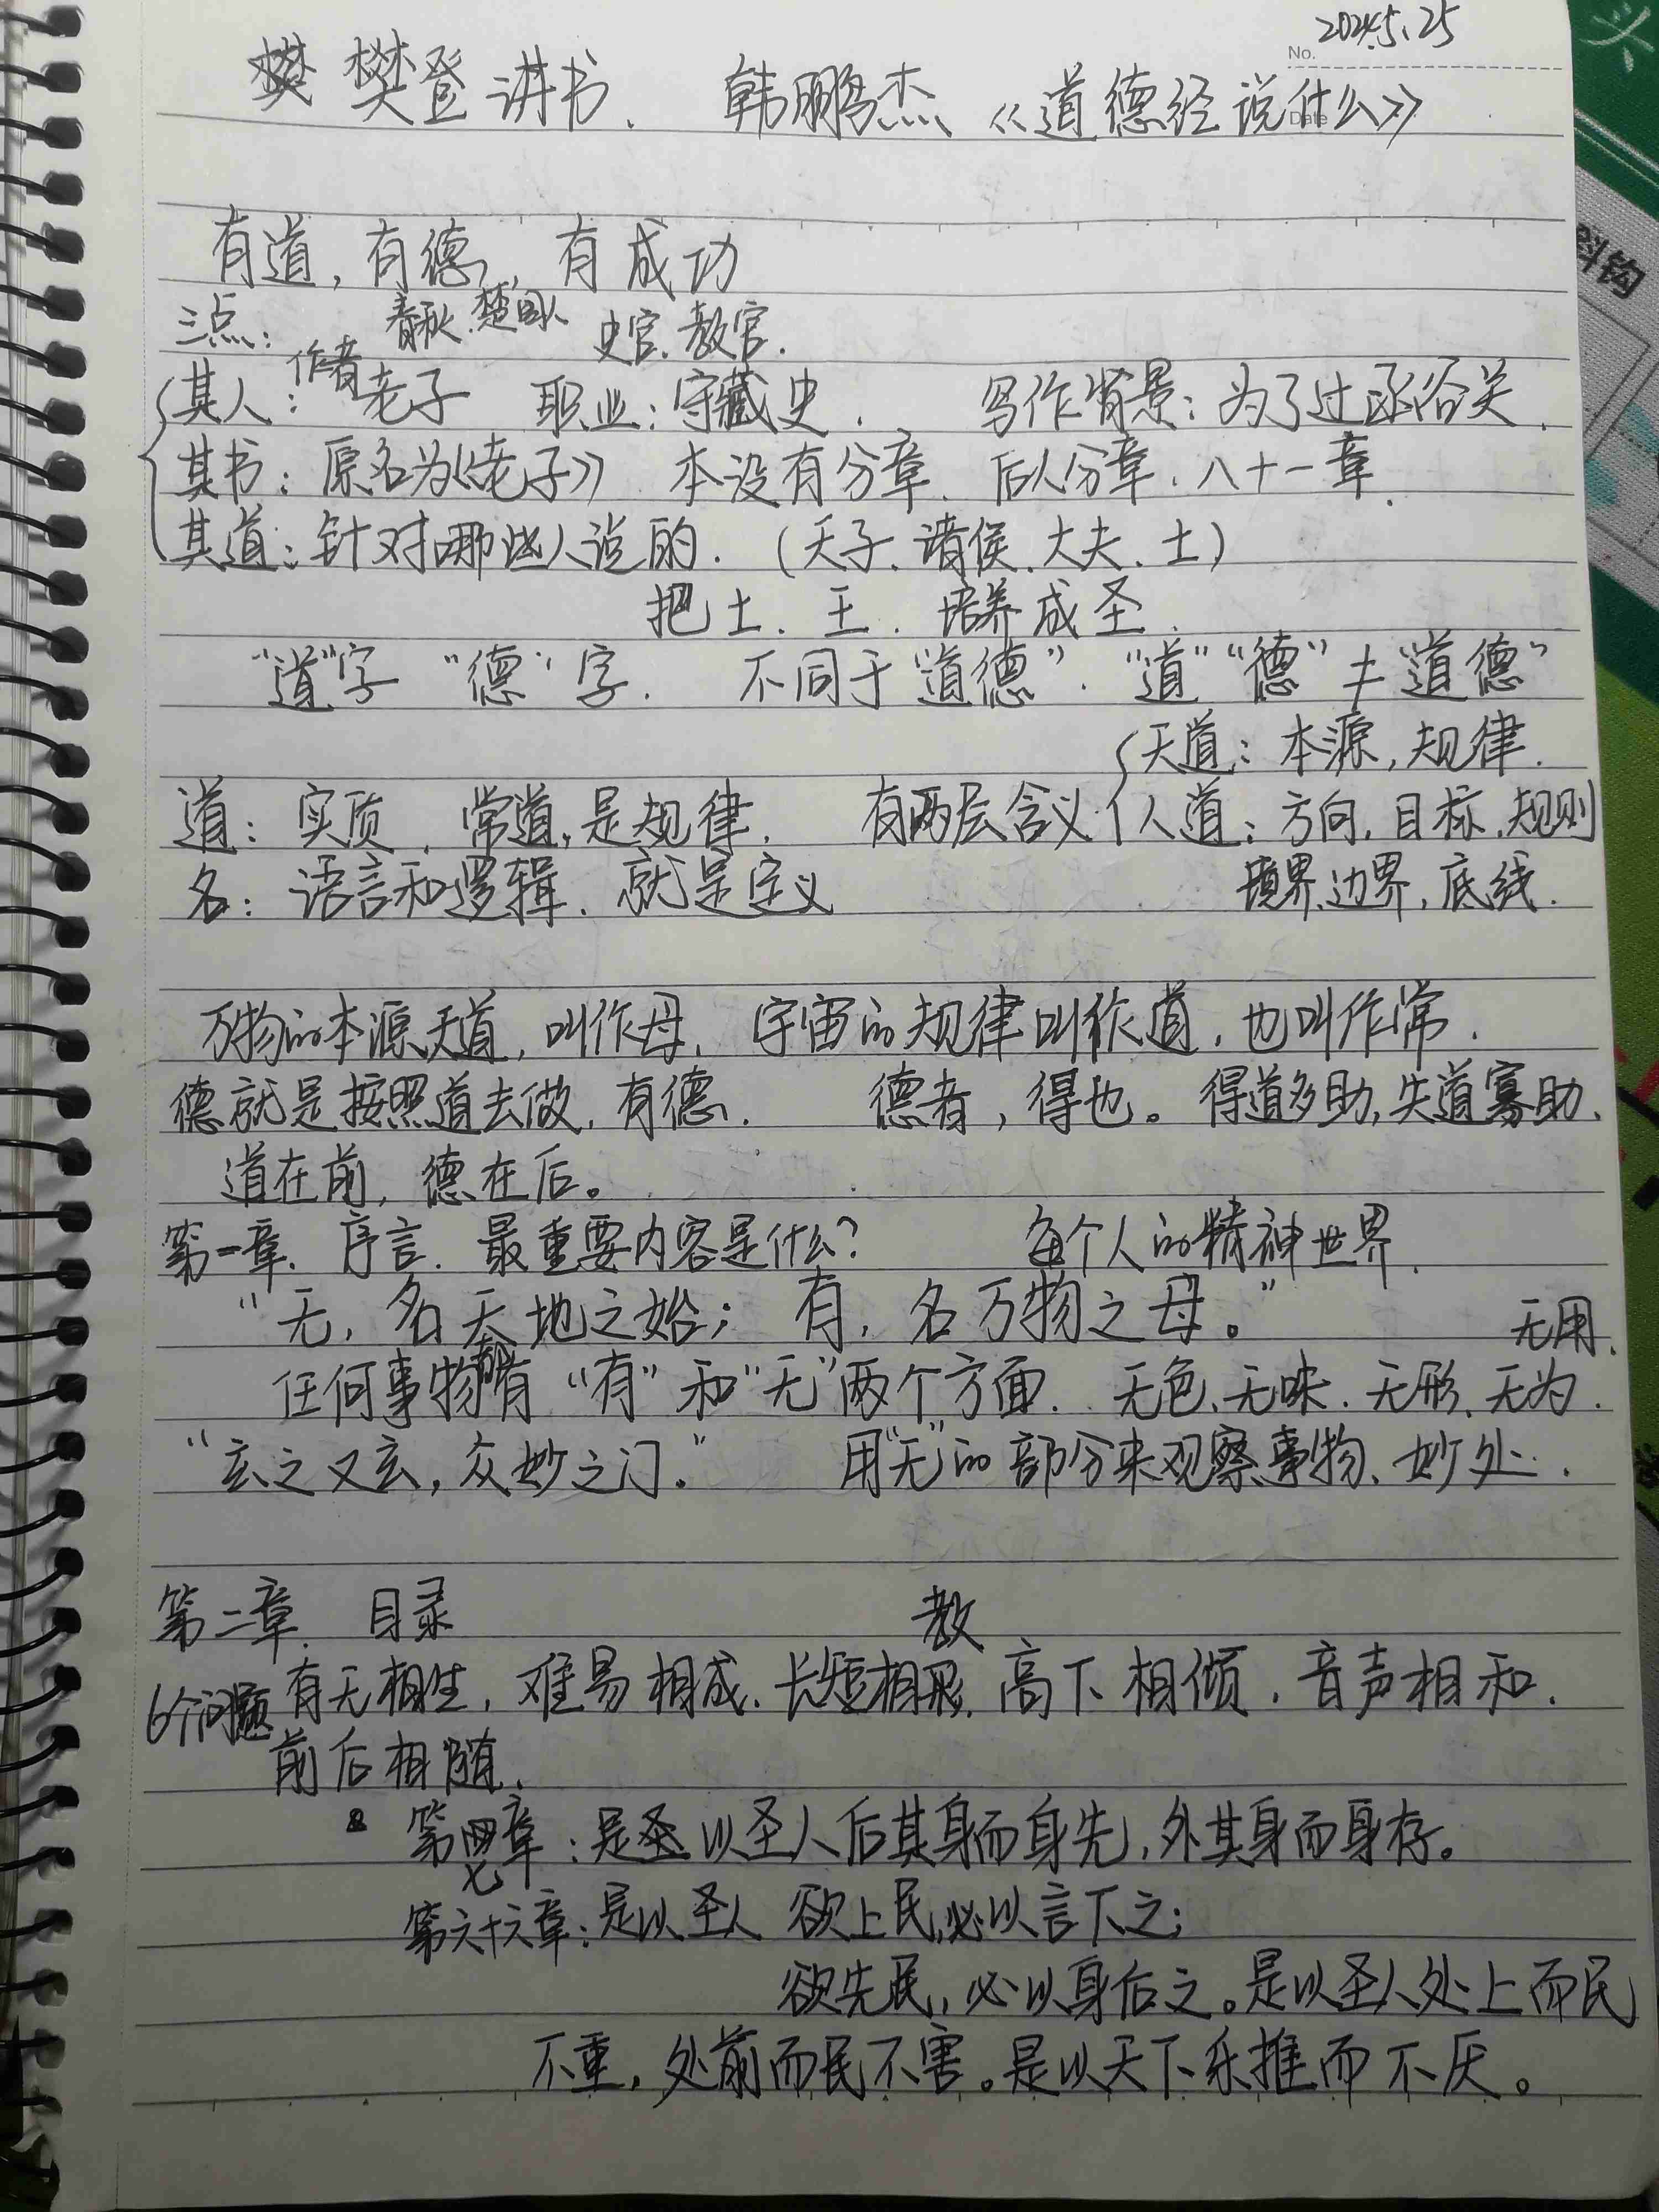 No. 2024.5.25
樊 樊登讲书、 韩鹏杰、《道德经说什么》
Date
有道,有德,有成功
三点: 春秋.楚国人 史官.教官.
其人:作者老子 职业:守藏史. 写作背景:为了过函谷关.
其书:原名为《老子》 本没有分章、后人分章.八十一章.
其道:针对哪些人说的.(天子、诸侯、大夫、士)
把士、王.培养成圣.
“道”字 “德”字. 不同于“道德”.“道”“德”≠“道德”
天道:本源,规律.
道:实质.常道,是规律. 有两层含义 人道:方向,目标,规则
名:语言和逻辑.就是定义 境界、边界,底线.
万物的本源天道,叫作母、宇宙的规律叫作道,也叫作常.
德就是按照道去做,有德. 德者,得也。得道多助,失道寡助、
道在前,德在后。
第一章、序言.最重要内容是什么? 每个人的精神世界.
“无,名天地之始;有,名万物之母。” 无用.
任何事物都有“有”和“无”两个方面. 无色、无味.无形、无为.
“玄之又玄,众妙之门。” 用“无”的部分来观察事物、妙处.
第二章. 目录 教
6个问题 有无相生,难易相成、长短相形、高下相倾.音声相和.
前后相随.
第七章:是以圣人后其身而身先,外其身而身存。
第六十六章:是以圣人 欲上民,必以言下之;
欲先民,必以身后之。是以圣人处上而民
不重,处前而民不害。是以天下乐推而不厌。
斜钩